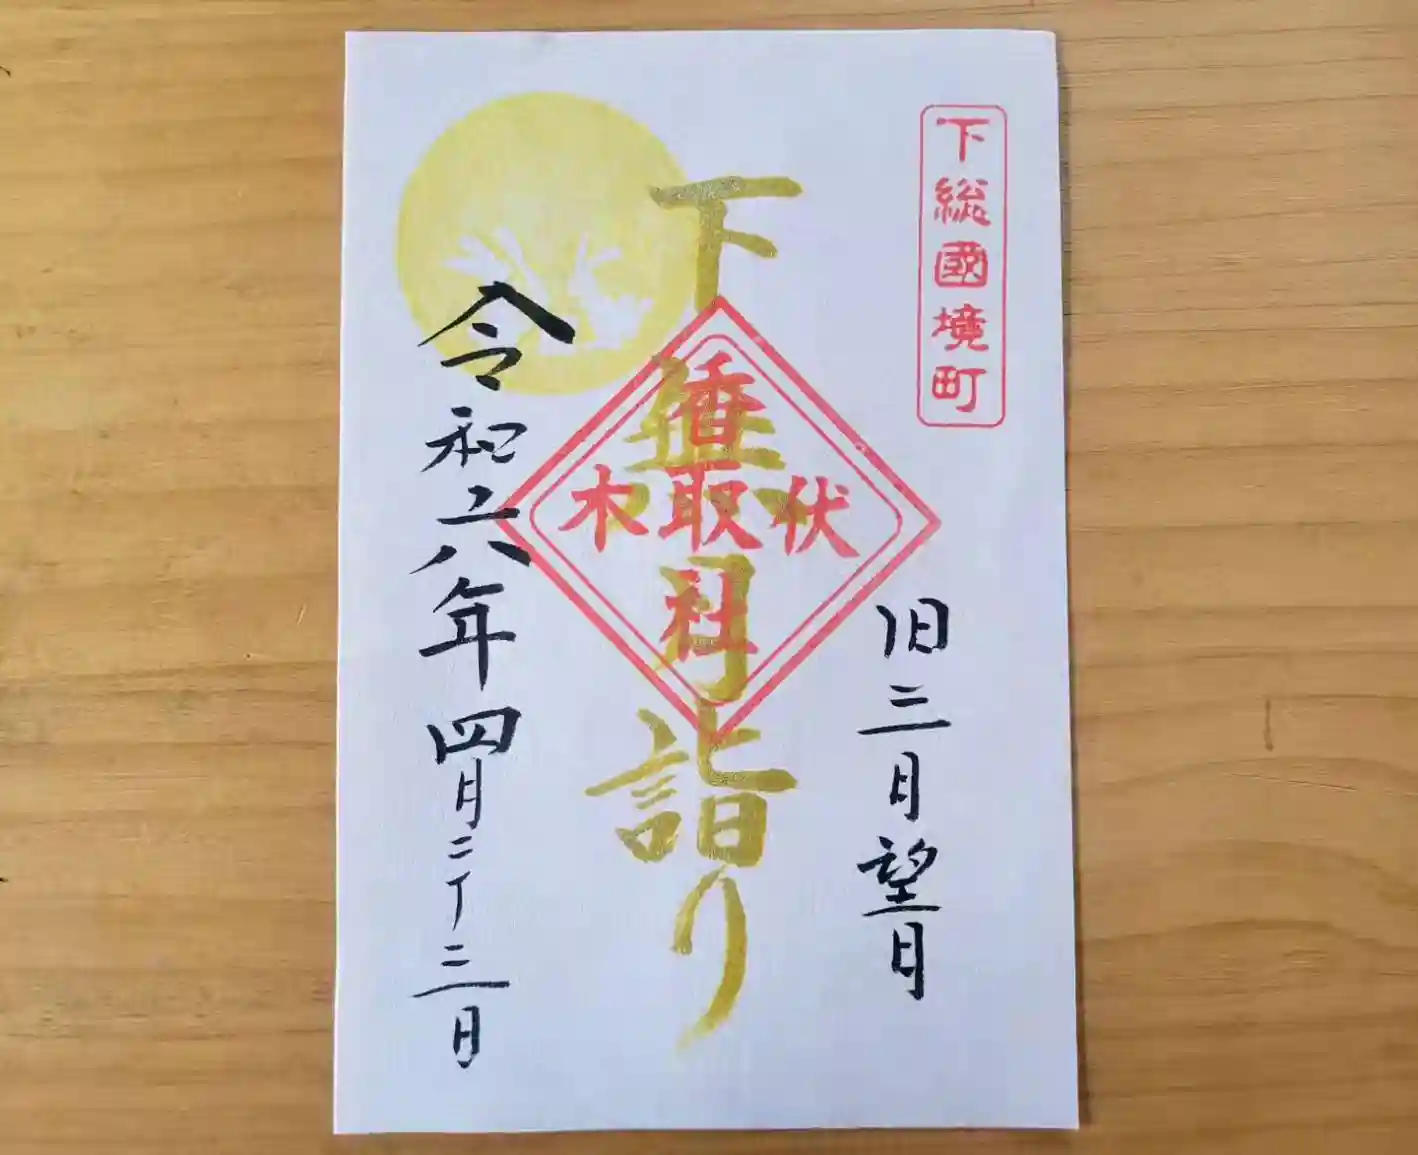 下総國境町
旧三月望日
下 月詣り
伏木
香取社
令和六年四月二十三日